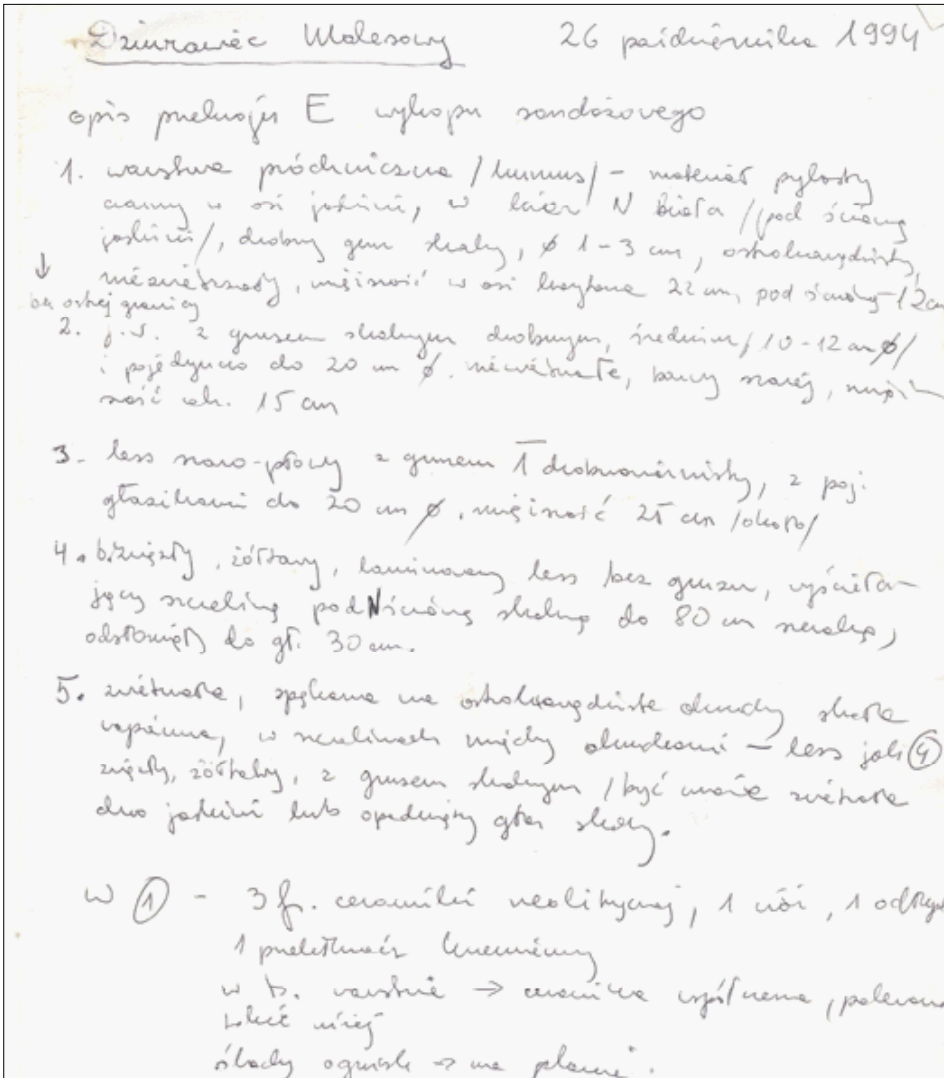 Dziurawiec Walesowy 26 października 1994
opis przekroju E wykopu sondażowego
1. warstwa próchniczna /humus/ - materiał pylasty
czarny w osi jaskini, w N biała /pod ścianą
jaskini/, drobny gruz skalny, ø 1-3 cm, ostrokrawędzisty,
niezwietrzały, miąższość w osi koryta 22 cm, pod ścianą 12 cm
↓
bez ostrej granicy
2. j.w. z gruzem skalnym drobnym, średnim /10-12 cm ø/
i pojedynczo do 20 cm ø. niezwietrzałe, barwy szarej, miąż-
szość ok. 15 cm
3. less szaro-płowy z gruzem drobnoziarnisty, z poj.
głazikami do 20 cm ø. miąższość 25 cm /około/
4. b. zwięzły, żółtawy, laminowany less bez gruzu, wyściela-
jący szczelinę pod N ścianą skalną do 80 cm szeroką,
odsłonięty do gł. 30 cm.
5. zwietrzała, spękana na ostrokrawędziste okruchy skała
wapienna, w szczelinach między okruchami - less jak (4)
zwięzły, żółtawy, z gruzem skalnym /być może zwietrzałe
dno jaskini lub opadnięty głaz skalny.
w (1) - 3 fr. ceramiki neolitycznej, 1 wiór, 1 odłupek
1 przekłuwacz krzemienny
w t. warstwie → ceramika współczesna, polewana
także niżej
ślady ognisk → na planie.